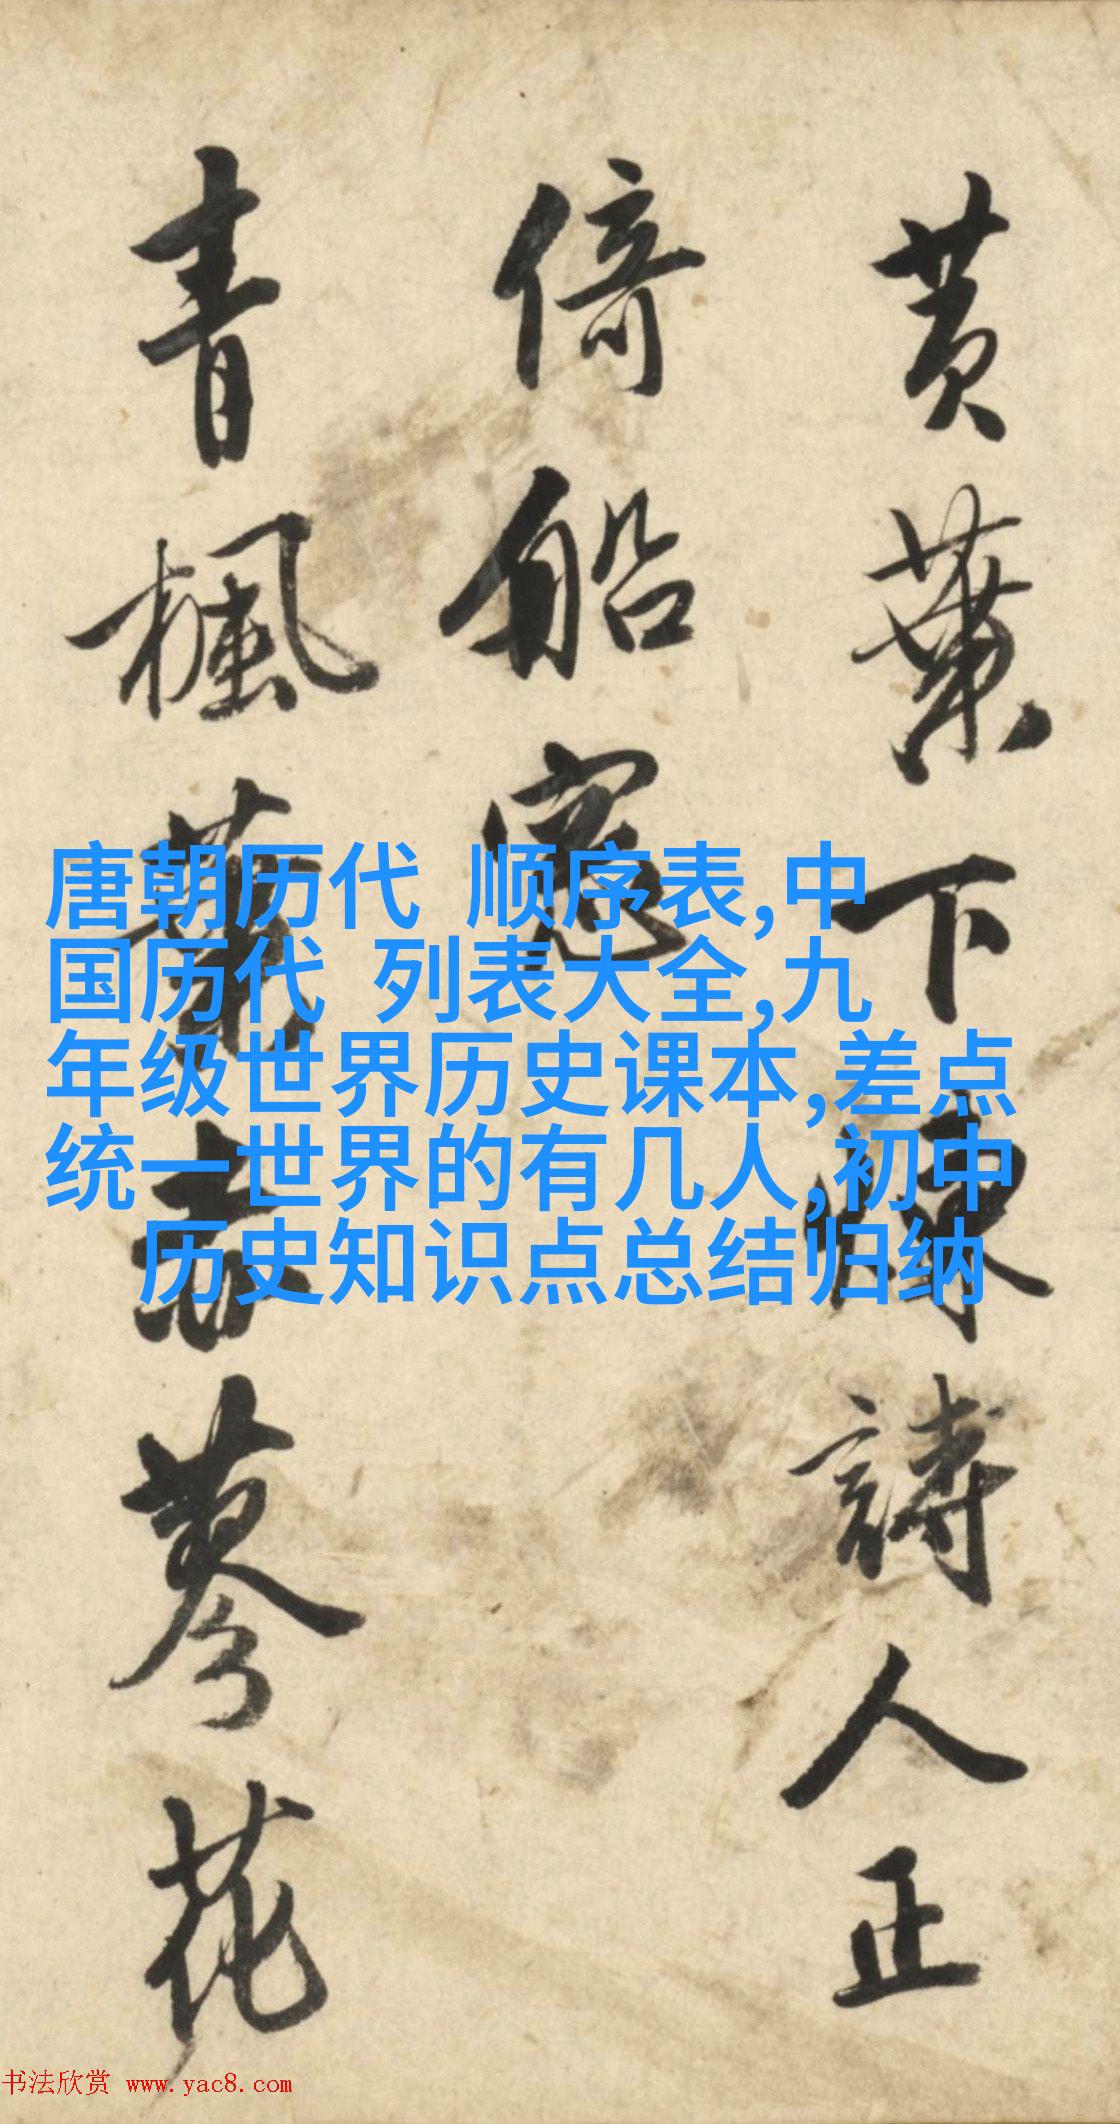 黄葉下陳詩人正
倚船窓
青楓葉赤蓼花
唐朝历代 顺序表,中
国历代 列表大全,九
年级世界历史课本,差点
统一世界的有几人,初中
历史知识点总结归纳
书法欣赏 www.yac8.com